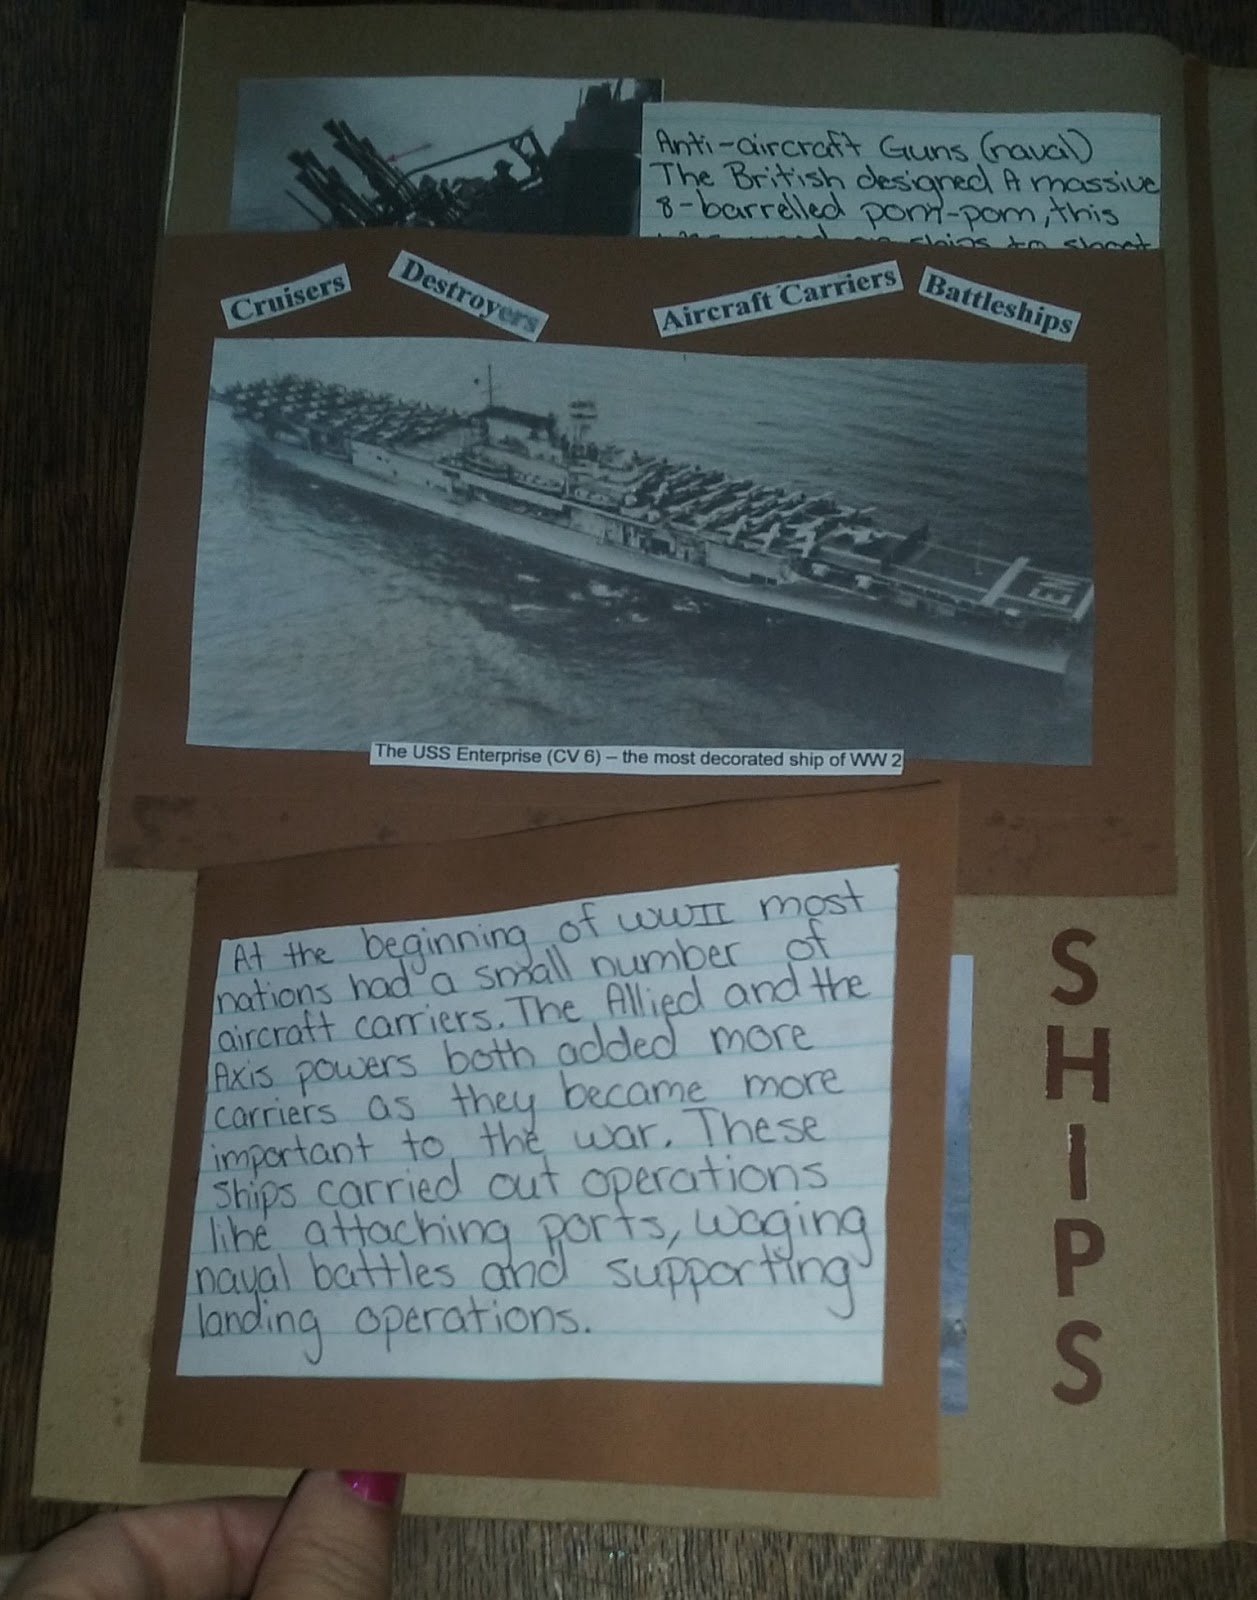 Anti-aircraft Guns (naval)
The British designed A massive
8-barrelled pom-pom, this
ships to shoot
Cruisers
Destroyers
Aircraft Carriers
Battleships
EN
The USS Enterprise (CV 6) – the most decorated ship of WW 2
At the beginning of WWII most
nations had a small number of
aircraft carriers. The Allied and the
Axis powers both added more
carriers as they became more
important to the war. These
ships carried out operations
like attaching ports, waging
naval battles and supporting
landing operations.
SHIPS